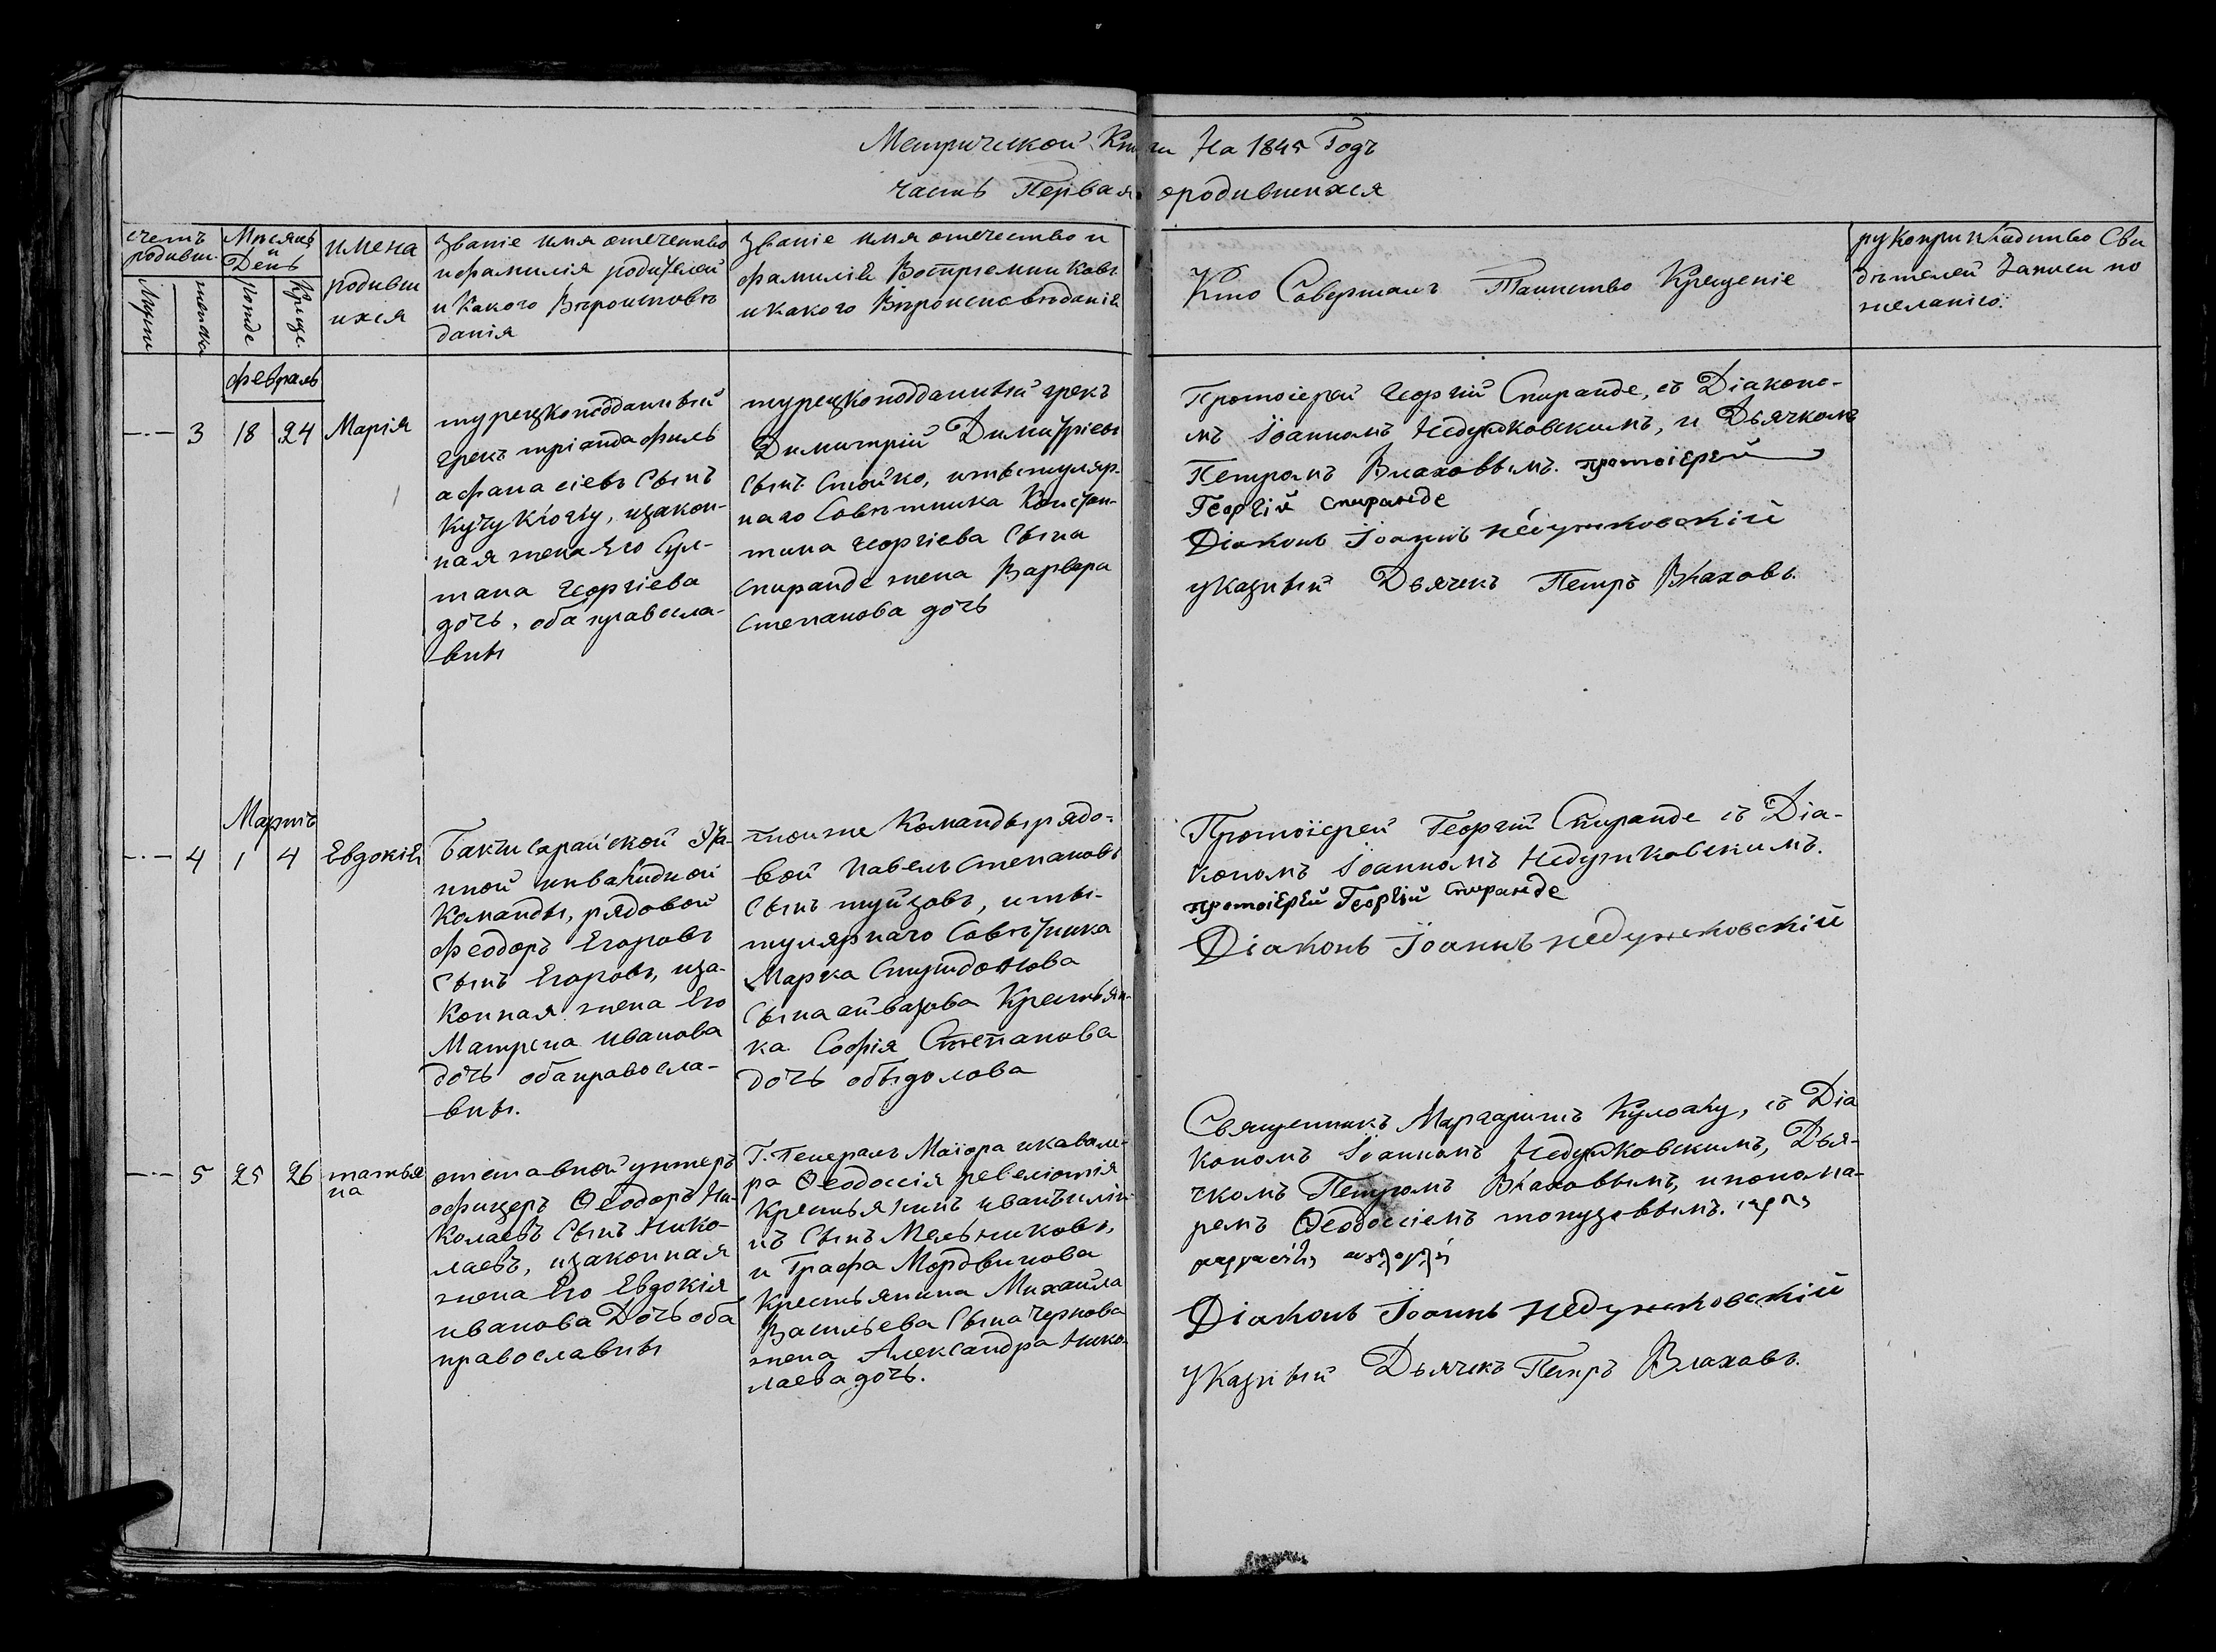 Метрической Книги На 1845 Годъ
часть Первая о родившихся
счетъ родивш.
Мужи
женска
Месяцъ и День
рожде
Креще.
имена родивш ихся
Званіе имя отечество
и фамилія родителей
и Какого Вероисповѣ
данія
Званіе имя отечество и
фамилія Воспріемниковъ
и какого Вѣроисповѣданія
Кто Совершалъ Таинство Крещеніе
рукоприкладство Сви
дѣтелей Записи по
желанію.
февраль
3 18 24 Марія
турецкоподданный
грекъ тріандафилъ
афанасіевъ Сынъ
Кучукюглу, изакон-
ная жена Его Сул-
тана Георгіева
дочь, оба правосла-
вны
турецкоподданный грекъ
Димитрій Димитріевъ
Сынъ Стойко, итытуляр-
наго Совѣтника Констан-
тина Георгіева Сына
Спиранде жена Варвара
Степанова дочь
Протоіерей Георгій Спиранде, съ Діаконо-
мъ Іоанномъ Недужковскимъ, и Дьячкомъ
Петромъ Влаховымъ. протоіерей
Георгій Спиранде
Діаконъ Іоаннъ недужковскій
указный Дьячекъ Петръ Влаховъ.
Мартъ
4 1 4 Евдокія
Бахчисарайской Эта-
пной инвалидной
Команды, рядовой
Феодоръ Егоровъ
Сынъ Егоровъ, иза-
Конная жена Его
Матрена Иванова
дочь оба правосла-
вны.
тоиже Команды рядо-
вой Павелъ Степановъ
Сынъ туйзовъ, иты-
тулярнаго Совѣтника
Марка
Сына айвазова Крестьян-
ка Софія Степанова
дочь
Протоіерей Георгій Спиранде съ Діа-
кономъ Іоанномъ Недужковскимъ.
протоіерей Георгій Спиранде
Діаконъ Іоаннъ недужковскій
5 25 26 татья
на
отставной унтеръ
офицеръ Ѳеодоръ Ни-
колаевъ Сынъ Нико-
лаевъ, изаконная
жена Его Евдокія
иванова Дочь оба
православны
Г. Генералъ Маіора икавале-
ра Ѳеодосія ревеліотія
Крестьянинъ иванъ
нъ Сынъ Мельниковъ,
и Графа Мордвинова
Крестьянина Михаила
Васильева Сына Чернова
жена Александра Нико-
лаева дочь.
Священникъ Маргаритъ Кулоглу, съ Діа
кономъ Іоанномъ Недужковскимъ, Дья-
чкомъ Петромъ Влаховымъ, ипонома-
ремъ Ѳеодосіемъ топузовымъ.
Діаконъ Іоаннъ недужковскій
указный Дьячекъ Петръ Влаховъ.